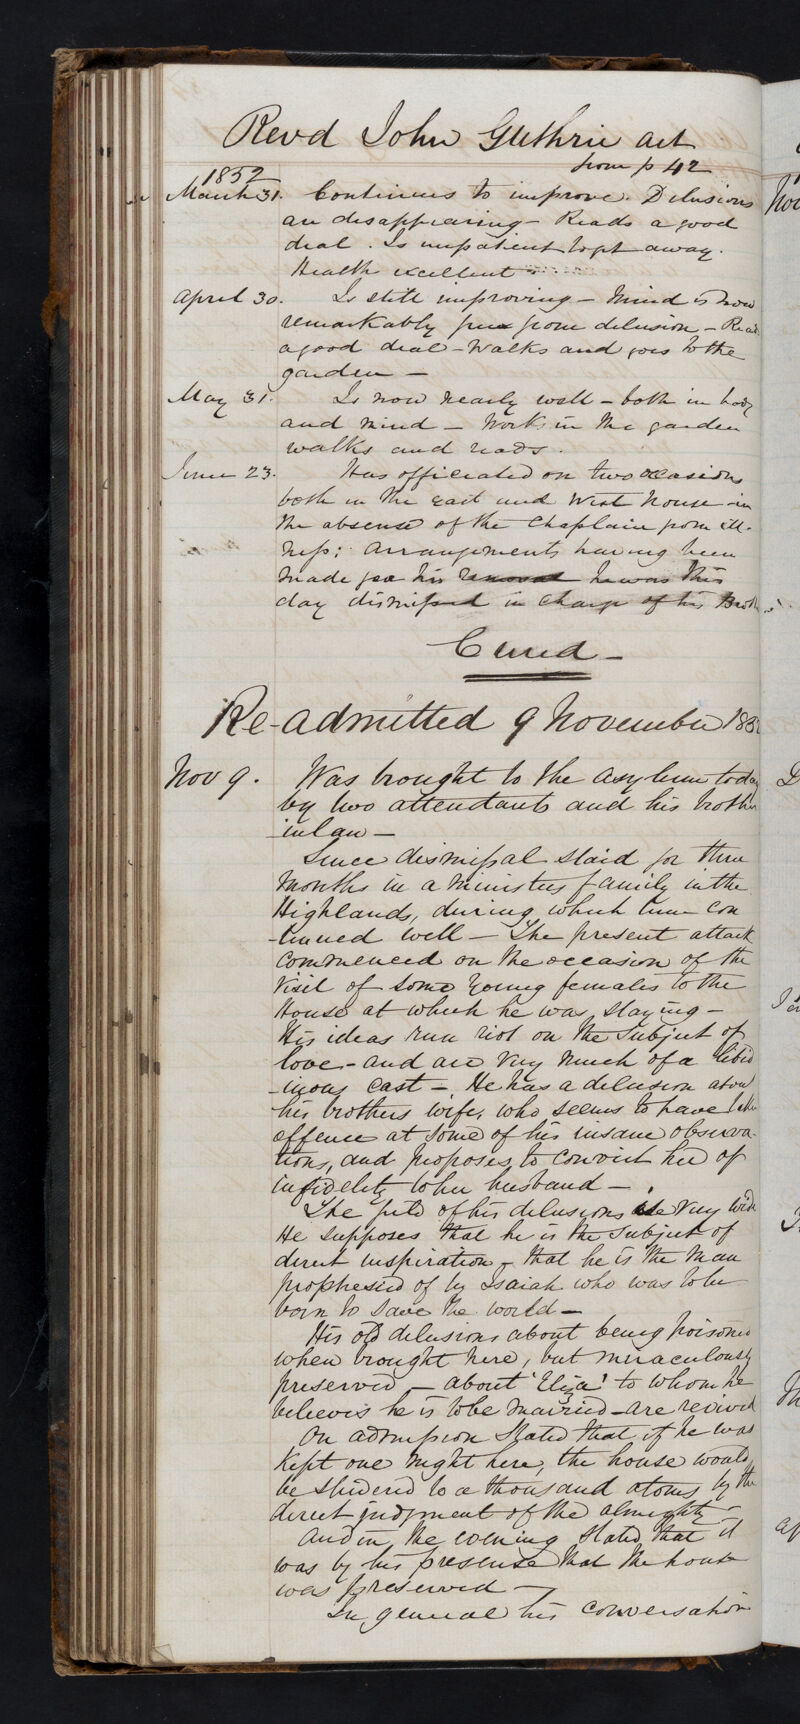 Revd John Guthrie aet
from p 42
1852
March 31. Continues to improve. Delusions
are disappearing - Reads a good
deal. Is impatient to get away.
Health excellent
April 30. Is still improving - Mind is now
remarkably free from delusion - Reads
a good deal - Walks and goes to the
garden -
May 31. Is now nearly well - both in body
and mind - Works in the garden
walks and reads.
June 23. Has officiated on two occasions
both in the east and West House in
the absense of the Chaplain from ill-
ness: Arrangements having been
made for his removal he was this
day dismissed in charge of his Brother
Cured -
Re-admitted 9 November 1852
Nov 9. Was brought to the Asylum today
by two attendants and his brother
in law -
Since dismissal staid for three
months in a Ministers family in the
Highlands, during which time con
-tinued well - The present attack
commenced on the occasion of the
visit of some young females to the
House at which he was staying -
His ideas run riot on the subject of
love - and are very much of a libid
-inous cast - He has a delusion about
his brothers wife, who seems to have taken
offence at some of his insane observa-
tions, and proposes to convict her of
infidelity to her husband -
The field of his delusions is very wide
He supposes that he is the subject of
direct inspiration - that he is the man
prophesied of by Isaiah who was to be
born to save the world -
His old delusions about being poisoned
when brought here, but miraculously
preserved - about 'Eliza' to whom he
believes he is to be married - are revived
On admission stated that if he was
kept one night here, the house would
be shivered to a thousand atoms by the
direct judgment of the almighty -
And in the evening stated that it
was by his presense that the house
was preserved -
In general his conversation